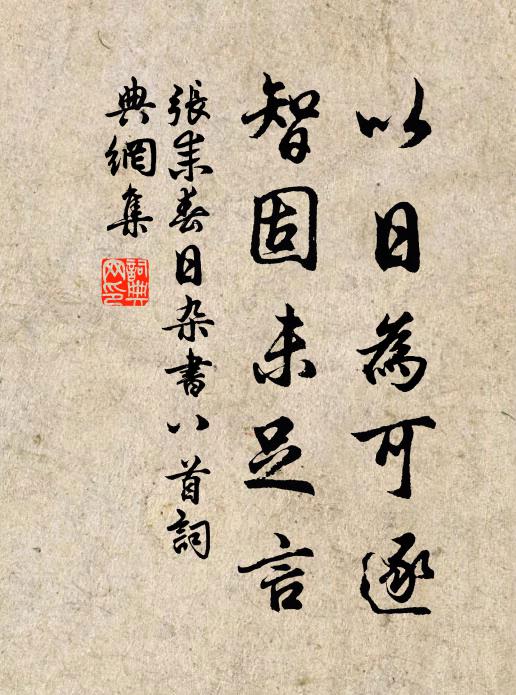 以日為可逐
智固未足言
張耒春日杂書八首詞
典網集
詞典网印